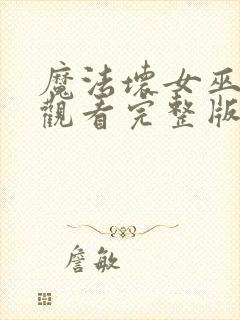 魔法壞女巫
觀看完整版
詹敏